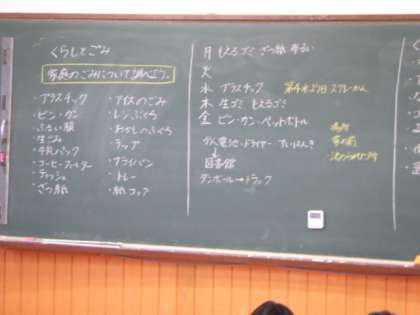 くらしとごみ
家庭のごみについて調べよう。
・プラスチック
・ビン・カン
・ふるい服
・生ごみ
・牛乳パック
・コーヒーフィルター
・ティッシュ
・ざつ紙
・アイスのごみ
・レジぶくろ
・おかしのふくろ
・ラップ
・フライパン
・トレー
・紙コップ
月 もえるゴミ ざつ紙 布るい
火
水 プラスチック 第4水よう日 スプレーかん
木 生ゴミ もえるゴミ
金 ビン・カン・ペットボトル
電池・ドライヤー
図書館
ダンボール→トラック
場所
家の前